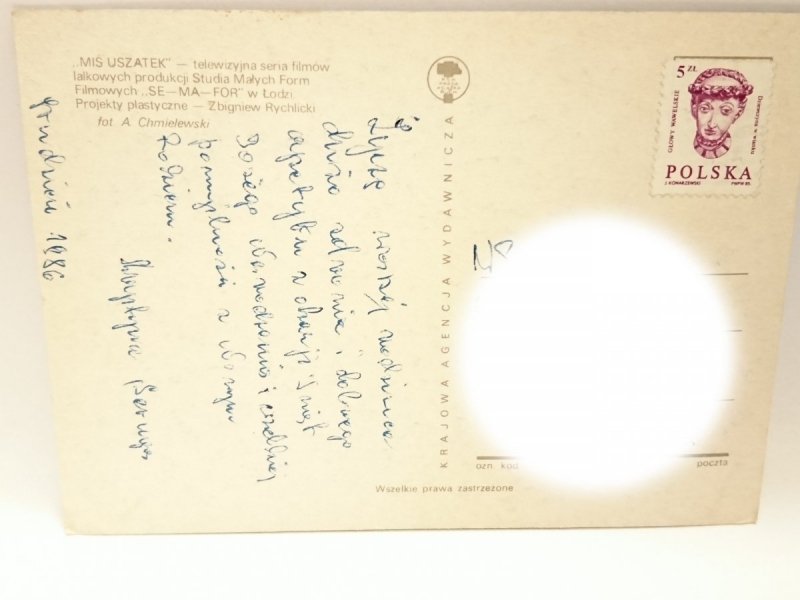 „MIŚ USZATEK” — telewizyjna seria filmów
lalkowych produkcji Studia Małych Form
Filmowych „SE—MA—FOR” w Łodzi.
Projekty plastyczne — Zbigniew Rychlicki
fot A. Chmielewski
Grudzień 1986
Życzę
dużo zdrowia i dobrego
apetytu z okazji Świąt
Bożego Narodzenia i wszelkiej
pomyślności z Nowym
Rokiem.
KRAJOWA AGENCJA WYDAWNICZA
5 ZŁ
GŁOWY WAWELSKIE
Dziewczyna w wianku
POLSKA
J. KONARZEWSKI PWPW 85
ozn. kod
poczta
Wszelkie prawa zastrzeżone